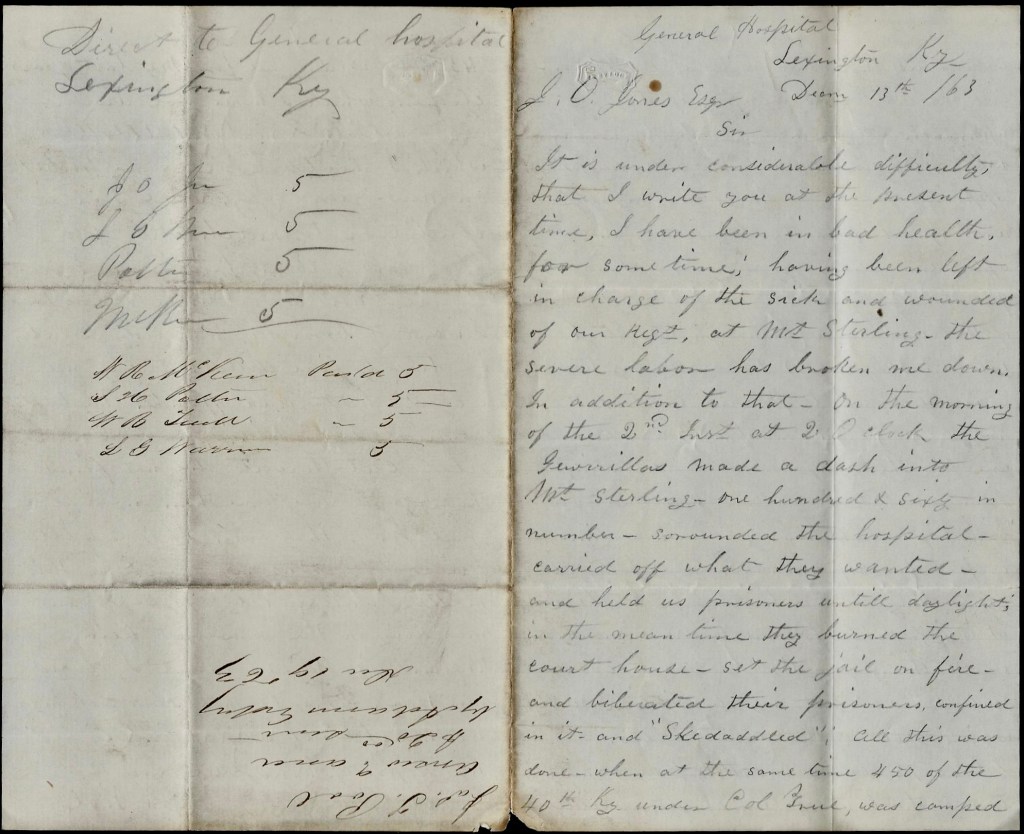 Direct to General hospital
Lexington Ky
J O Jon 5
5
Potter 5
McKee 5
W R McKeen Paid 5
S H Potter " 5
W B Tuell " 5
L G Warren 5
Jas. T. Pool
Answd & and
$20 00 sent
by Adams Expy
Dec 19th 63
General Hospital
Lexington Ky
J. O. Jones Esqr Decm 13th /63
Sir
It is under considerable difficulty,
that I write you at the present
time, I have been in bad health,
for sometime; having been left
in charge of the sick and wounded
of our Regt, at Mt Sterling - the
severe labor has broken me down.
In addition to that - On the morning
of the 2nd Inst at 2 O clock the
Gewrrillas made a dash into
Mt Sterling - one hundred & sixty in
number - sorounded the hospital -
carried off what they wanted -
and held us prisoners untill daylight;
in the mean time they burned the
court house - set the jail on fire -
and liberated their prisoners, confined
in it - and "Skedaddled"; All this was
done - when at the same time 450 of the
40th Ky under Col True, was camped